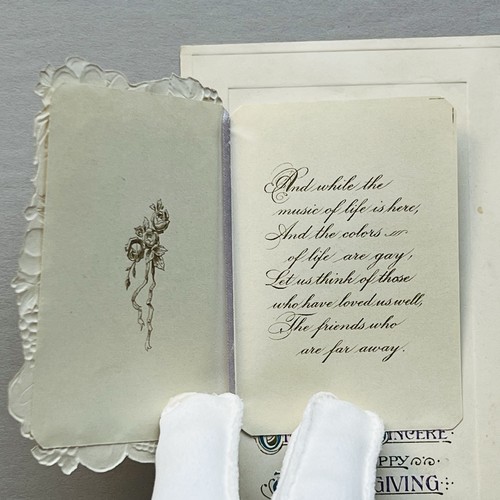 And while the
music of life is here,
And the colors
of life are gay,
Let us think of those
who have loved us well,
The friends who
are far away.
SINCERE
GIVING